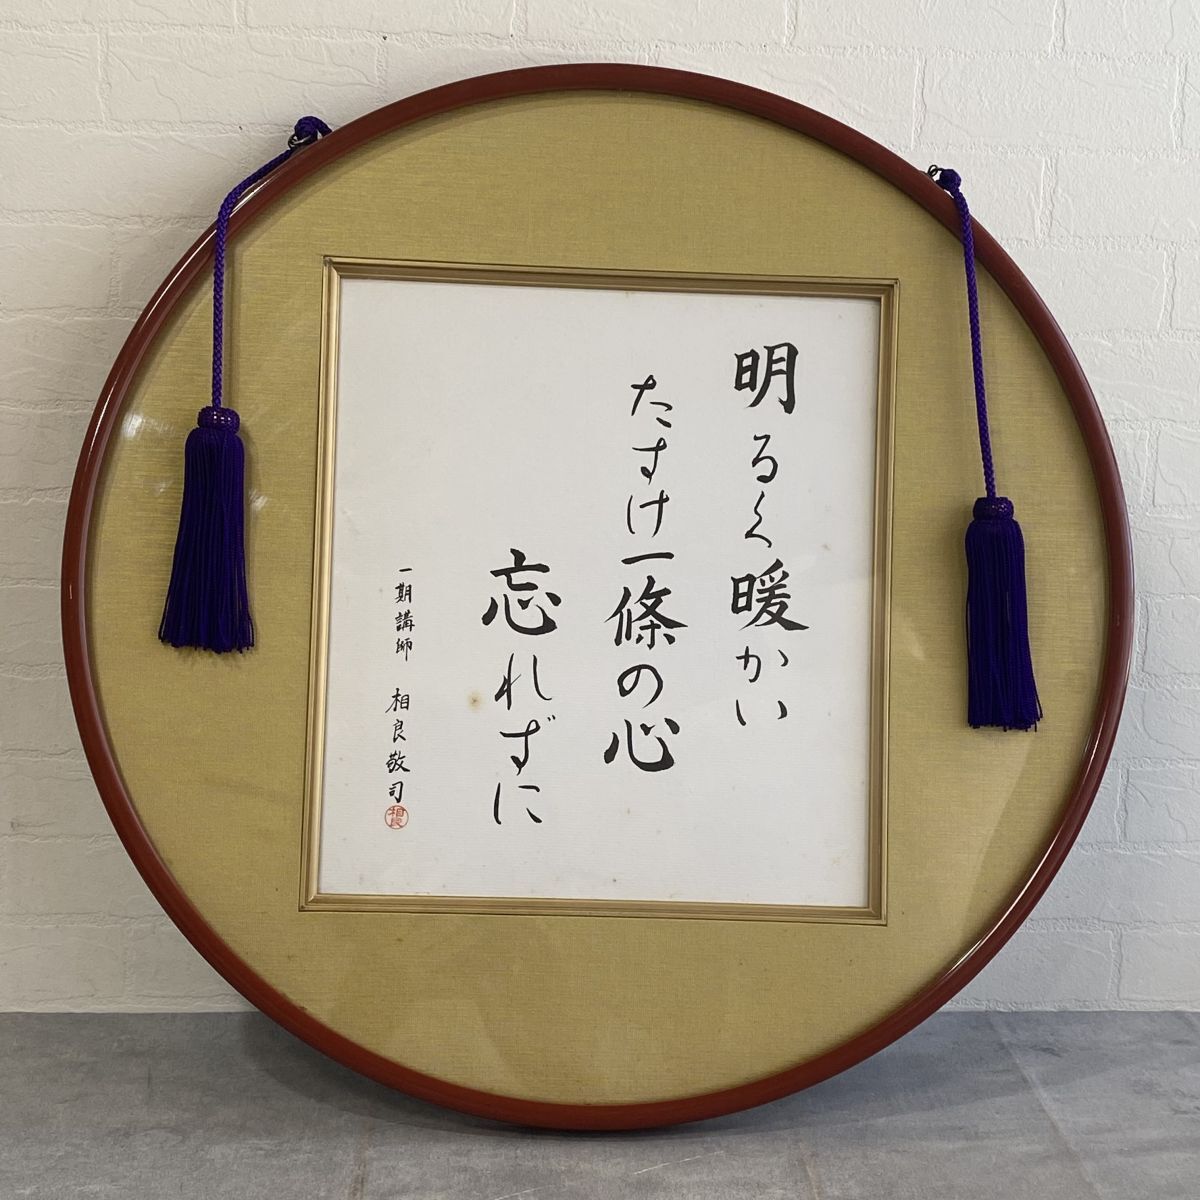 明るく暖かい
たすけ一條の心
忘れずに
一期講師 相良敬司
相良